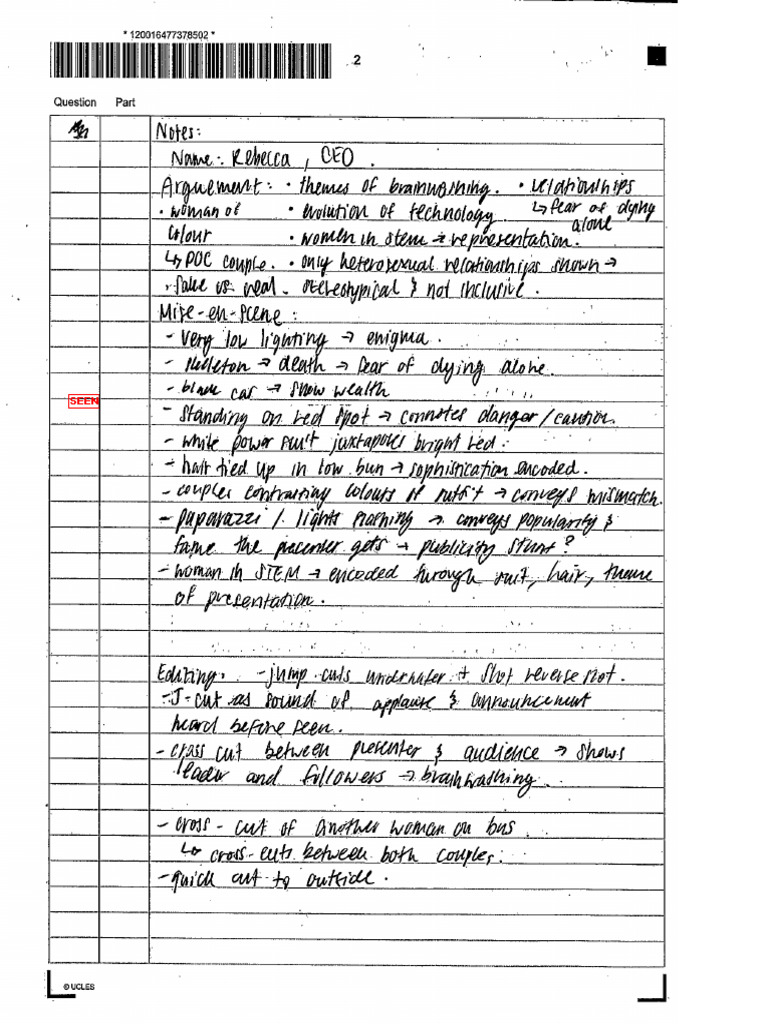 * 120016477378502 *
2
Question Part
Notes:
Name: Rebecca, CEO.
Arguement: • themes of brainwashing. • relationships
• woman of • evolution of technology. ↳ fear of dying
alone
colour • women in stem → representation.
↳ POC couple. • only heterosexual relationships shown →
• fake vs real. stereotypical & not inclusive.
Mise-en-scene:
- very low lighting → enigma.
- skeleton → death → fear of dying alone.
- black car → show wealth
SEEN
- standing on red spot → connotes danger/caution.
- white power suit juxtaposes bright red.
- hair tied up in low bun → sophistication encoded.
- couples contrasting colours of outfit → conveys mismatch.
- paparazzi / lights flashing → conveys popularity &
fame the presenter gets → publicity stunt?
- woman in STEM → encoded through suit, hair, theme
of presentation.
Editing: - jump cuts underwater + shot reverse shot.
- J-cut as sound of applause & announcement
heard before seen.
- cross cut between presenter & audience → shows
leader and followers → brainwashing.
- cross-cut of another woman on bus
↳ cross-cuts between both couples.
- quick cut to outside.
© UCLES